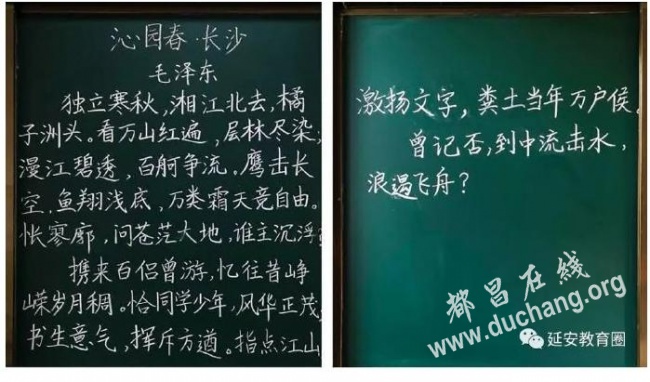 沁园春·长沙
毛泽东
独立寒秋,湘江北去,橘
子洲头。看万山红遍,层林尽染;
漫江碧透,百舸争流。鹰击长
空,鱼翔浅底,万类霜天竞自由。
怅寥廓,问苍茫大地,谁主沉浮?
携来百侣曾游,忆往昔峥
嵘岁月稠。恰同学少年,风华正茂;
书生意气,挥斥方遒。指点江山
激扬文字,粪土当年万户侯。
曾记否,到中流击水,
浪遏飞舟?
都昌在线
www.duchang.org
延安教育圈